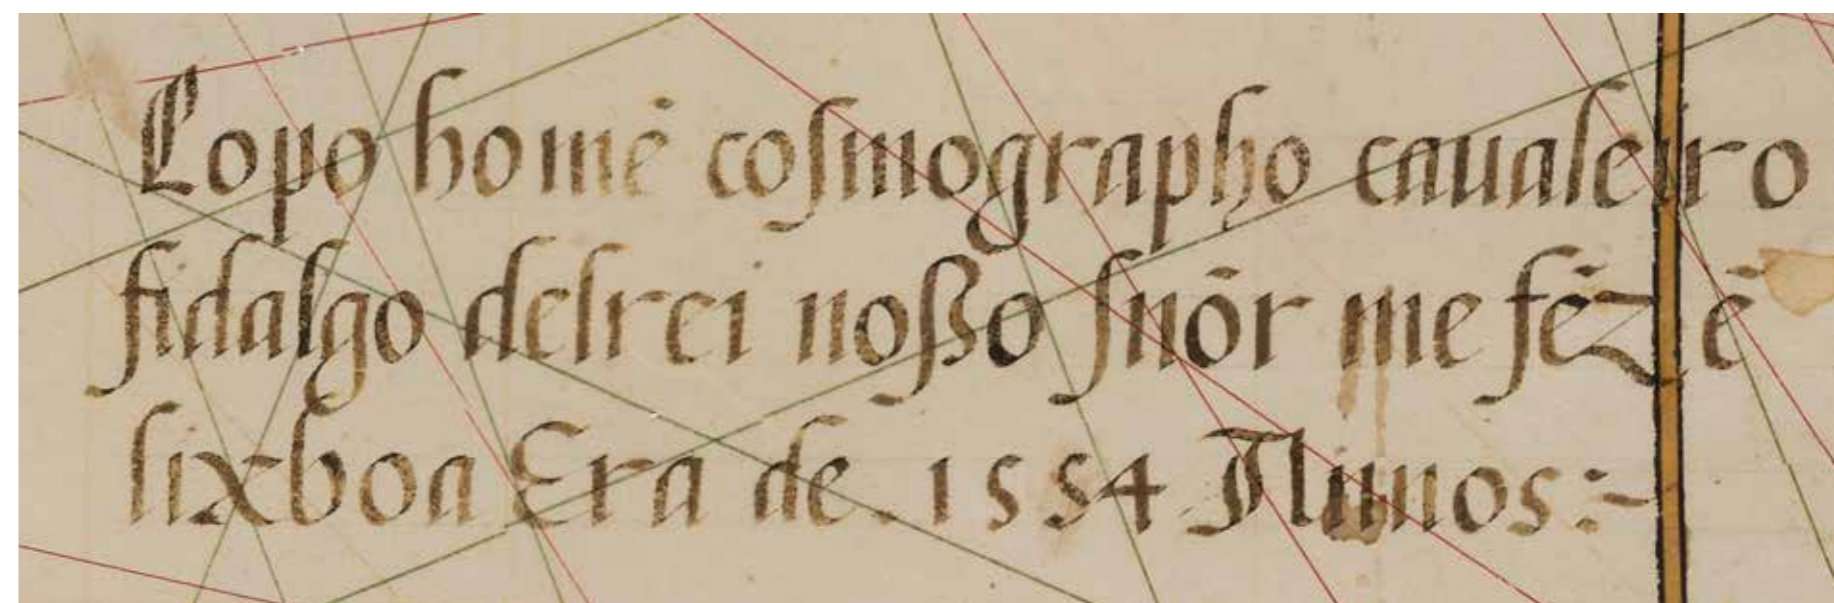 Lopo homẽ coſmographo caualeiro
fidalgo delrei noßo ſnõr me féz ẽ
lixboa Era de .1554 Annos :~